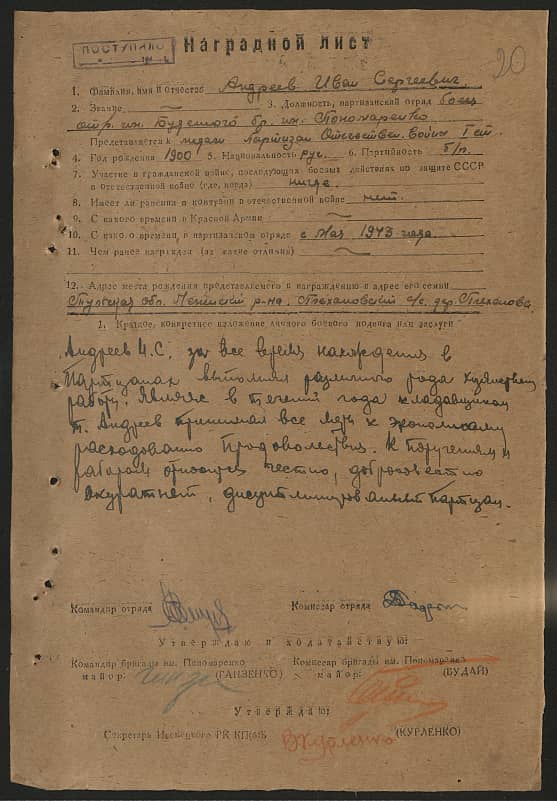 ПОСТУПИЛО
Наградной лист
20
1. Фамилия, имя и отчество Андреев Иван Сергеевич
2. Звание — 3. Должность, партизанский отряд боец
отр. им. Буденого бр. им. Пономаренко
Представляется к медали Партизан Отечествен. Войны I ст.
4. Год рождения 1900 5. Национальность рус. 6. Партийность б/п.
7. Участие в гражданской войне, последующих боевых действиях по защите СССР
и отечественной войне (где, когда) нигде.
8. Имеет ли ранения и контузии в отечественной войне нет.
9. С какого времени в Красной Армии —
10. С како о времени в партизанском отряде с мая 1943 года
11. Чем ранее награжден (за какие отличия) —
12. Адрес места рождения представляемого к награждению и адрес его семьи
Тульская обл. Ленинский р-на. Плехановский с/с. дер. Плеханово
1. Краткое, конкретное изложение личного боевого подвига или заслуги
Андреев И.С. за все время нахождения в
Партизанах выполнял различного рода хозяйствен
работы. Являяс в течении года кладовщиком
т. Андреев принимал все меры к экономному
расходованию Продовольствия. К поручениям и
работам относился честно, добросовестно
Акуратный, дисциплинированный партизан.
Командир отряда Комиссар отряда
Утверждаю и ходатайствую:
Командир бригады им. Пономаренко Комиссар бригады им. Пономаренко
майор: (ГАНЗЕНКО) майор: (БУДАЙ)
Утверждаю:
Секретарь РК КП(б)Б ВКурленко (КУРЛЕНКО)